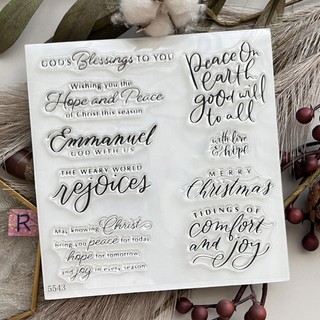 GOD'S Blessings TO YOU
Wishing you the
Hope and Peace
of Christ this season
Emmanuel
GOD WITH US
THE WEARY WORLD
rejoices
May knowing Christ
bring you peace for today
hope for tomorrow
and joy in every season
5543
Peace On
earth
good will
to all
with love
& hope
MERRY
Christmas
TIDINGS OF
comfort
and joy
R